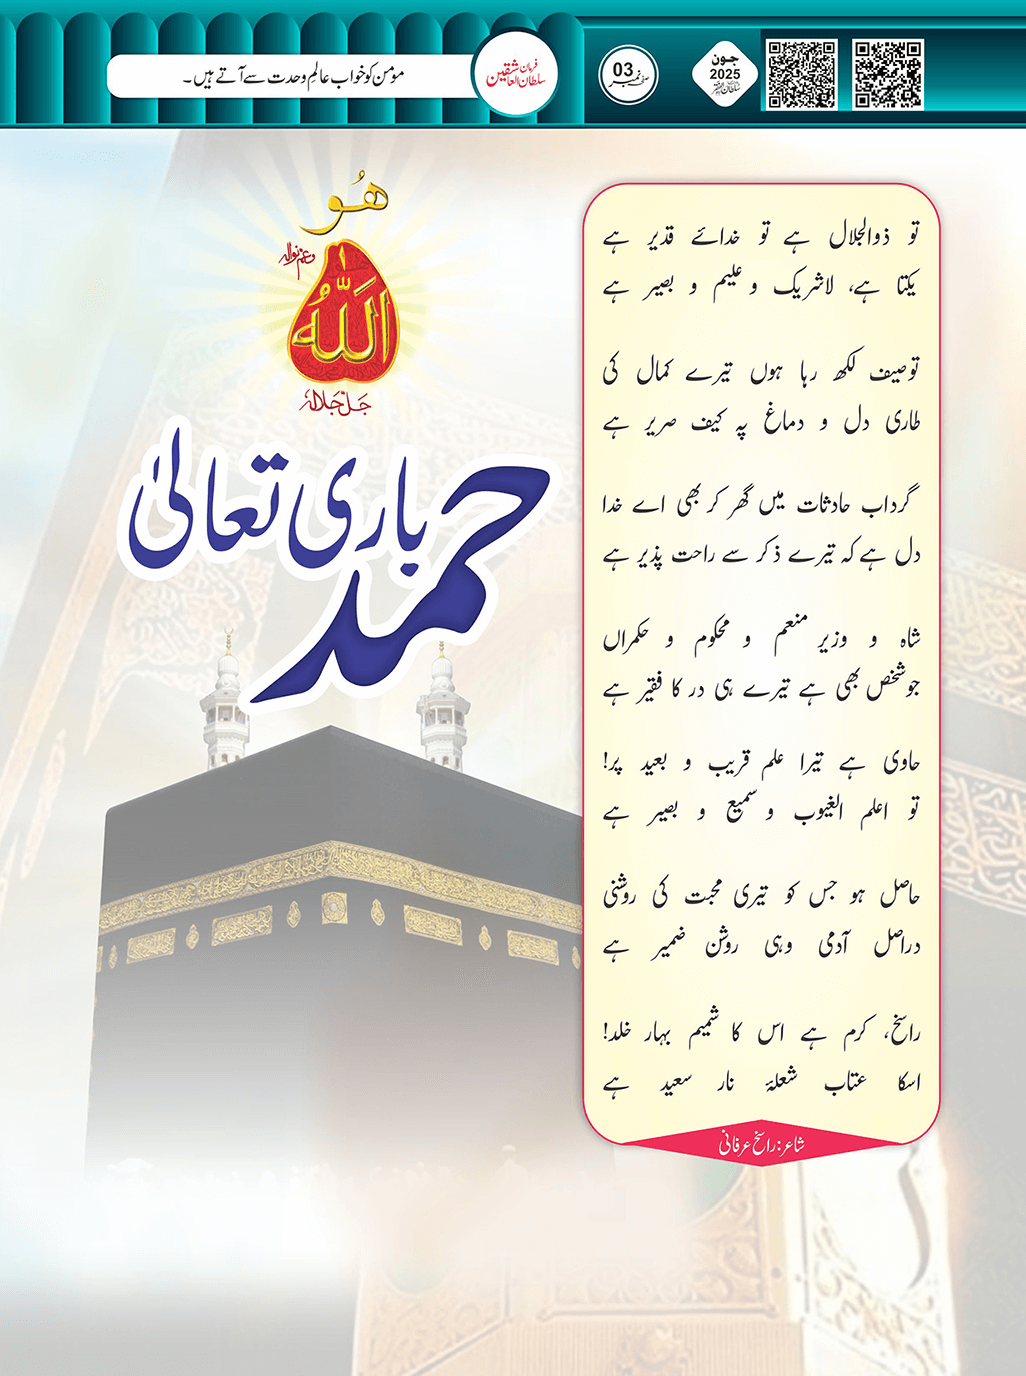 مومن کو خواب عالمِ وحدت سے آتے ہیں۔
فرمان
سلطان العاشقین
صفحہ نمبر 03
جون
2025
ھُو
اللہُ
جل جلالہٗ
وعم نوالہٗ
حمد باری تعالیٰ
تو ذوالجلال ہے تو خدائے قدیر ہے
یکتا ہے، لاشریک و علیم و بصیر ہے
توصیف لکھ رہا ہوں تیرے کمال کی
طاری دل و دماغ پہ کیف صریر ہے
گرداب حادثات میں گھر کر بھی اے خدا
دل ہے کہ تیرے ذکر سے راحت پذیر ہے
شاہ و وزیر منعم و محکوم و حکمراں
جو شخص بھی ہے تیرے ہی در کا فقیر ہے
حاوی ہے تیرا علم قریب و بعید پر!
تو اعلم الغیوب و سمیع و بصیر ہے
حاصل ہو جس کو تیری محبت کی روشنی
دراصل آدمی وہی روشن ضمیر ہے
راسخ، کرم ہے اس کا شمیم بہار خلد!
اسکا عتاب شعلۂ نار سعید ہے
شاعر: راسخ عرفانی